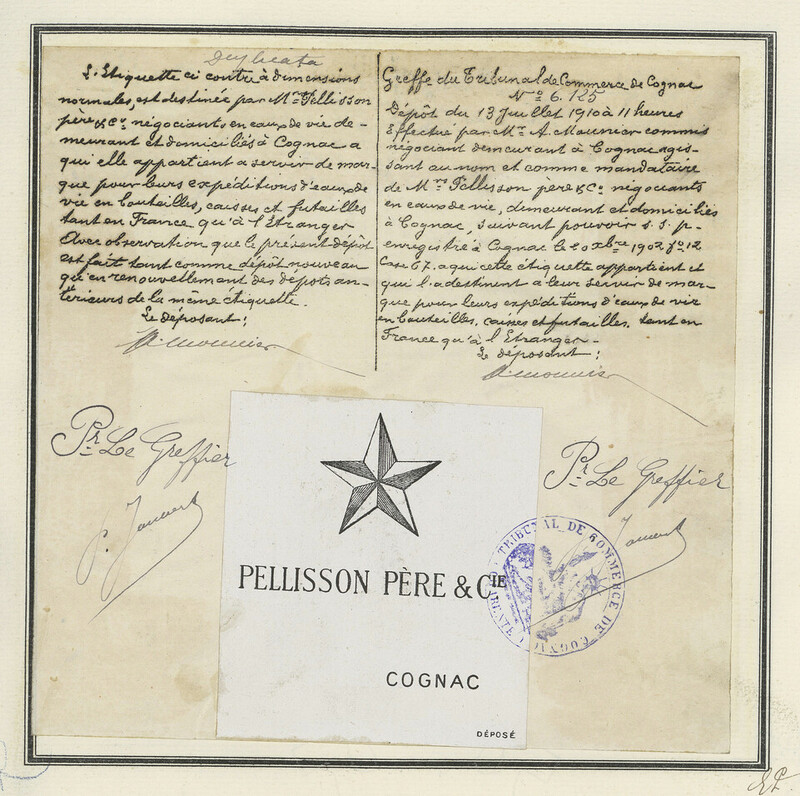 Duplicata
L'Etiquette ci contre à dimensions
normales, est destinée par Mrs Pellisson
père & Co négociants en eaux de vie de-
meurant et domiciliés à Cognac a
qui elle appartient a servir de mar-
que pour leurs expéditions d'eaux de
vie en bouteilles, caisses et futailles
tant en France qu'à l'Etranger
Avec observation que le présent dépôt
est fait tant comme dépôt nouveau
qu'en renouvellement des dépôts an-
térieurs de la même étiquette.
Le déposant:
A. Mounier
Greffe du Tribunal de Commerce de Cognac
No 6.125
Dépôt du 13 Juillet 1910 à 11 heures
Effectué par Mr A. Mounier commis
négociant demeurant à Cognac agis-
sant au nom et comme mandataire
de Mrs Pellisson père & Co négociants
en eaux de vie, demeurant et domiciliés
à Cognac, suivant pouvoir s.s.p.
enregistré à Cognac le 20 xbre 1902 fo 12
Case 67. a qui cette étiquette appartient et
qui l'a destinent a leur servir de mar-
que pour leurs expéditions d'eaux de vie
en bouteilles, caisses et futailles, tant en
France qu'à l'Etranger-
Le déposant:
A. Mounier
Pr Le Greffier
Pr Le Greffier
TRIBUNAL DE COMMERCE DE COGNAC
PELLISSON PÈRE & CIE
COGNAC
DÉPOSÉ